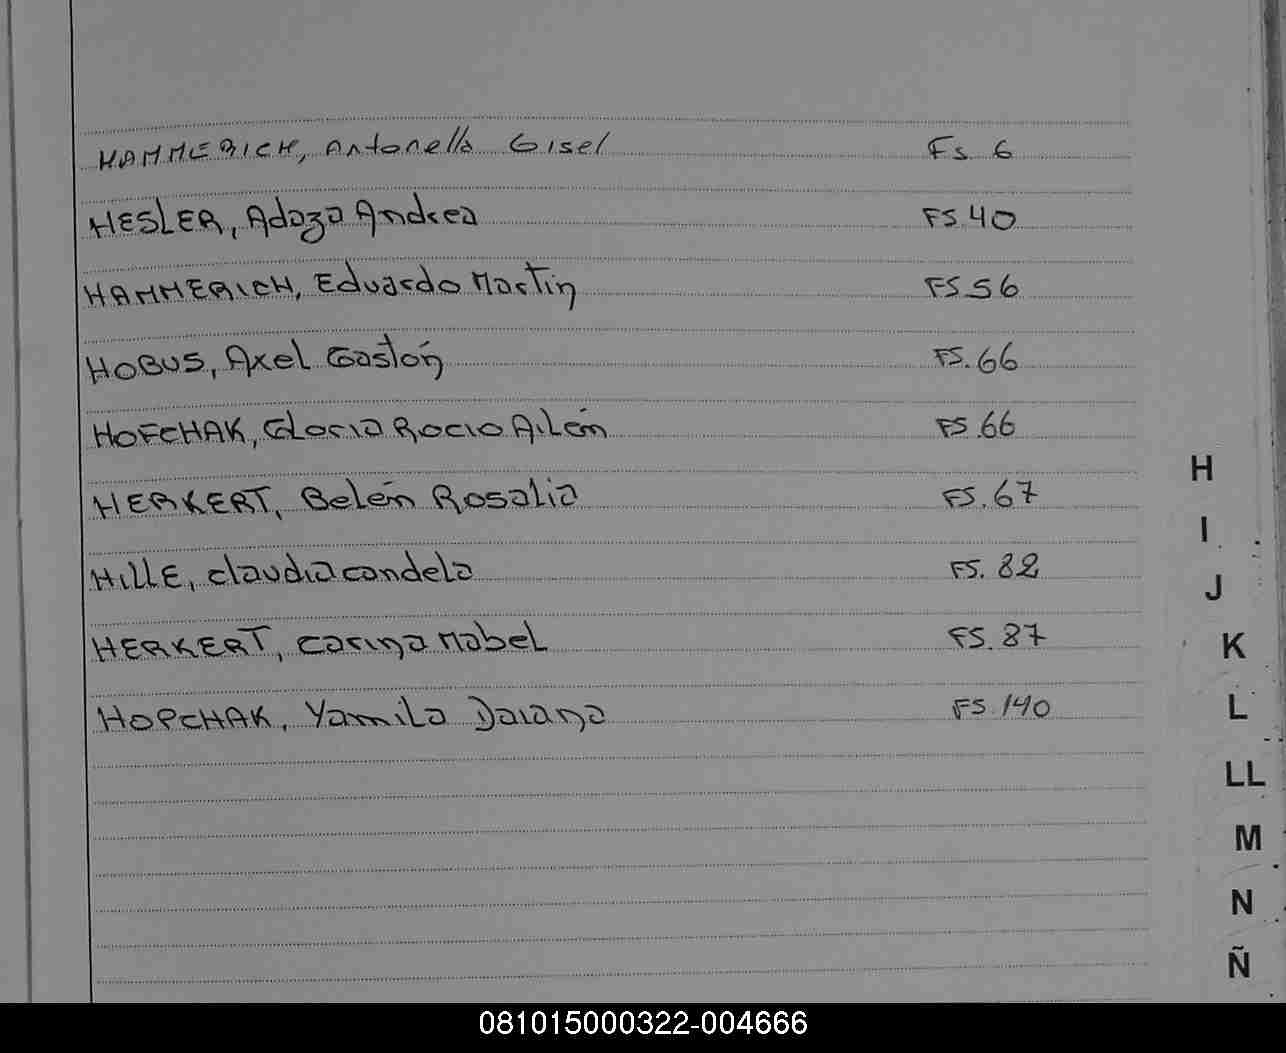 HAMMERICH, Antonella Gisel Fs. 6
HESLER, Adozo Andrea FS. 40
HAMMERICH, Eduardo Martin FS 56
HOBUS, Axel Gastón FS. 66
HOFCHAK, Gloria Rocio Ailén FS. 66
HERKERT, Belén Rosalia FS. 67
HILLE, claudia candela FS. 82
HERKERT, carina Mabel FS. 87
HOPCHAK, Yamila Daiana FS. 140
H
I
J
K
L
LL
M
N
Ñ
081015000322-004666